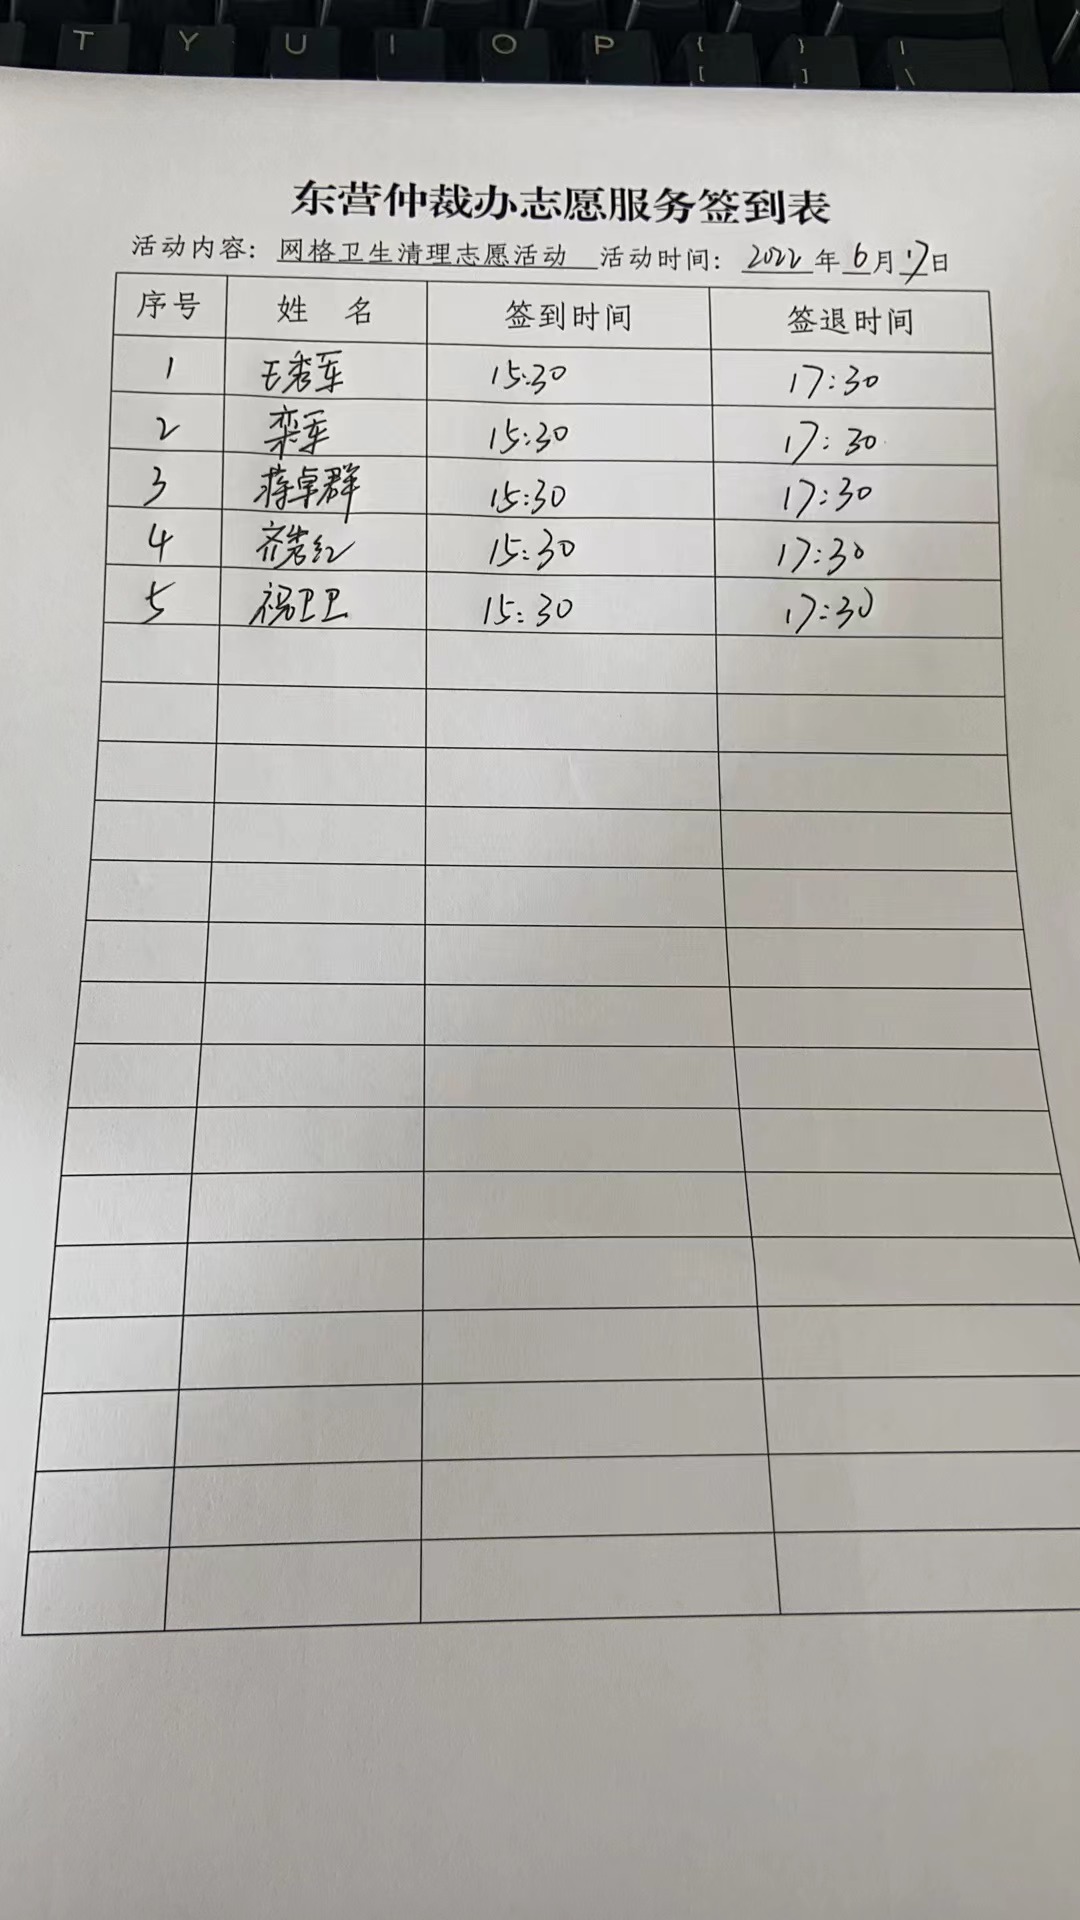 T Y U I O P { [ } ] | \
东营仲裁办志愿服务签到表
活动内容：网格卫生清理志愿活动 活动时间：2022年6月17日
序号 姓 名 签到时间 签退时间
1 王秀军 15:30 17:30
2 栾军 15:30 17:30
3 蒋卓群 15:30 17:30
4 齐红 15:30 17:30
5 祝卫卫 15:30 17:30